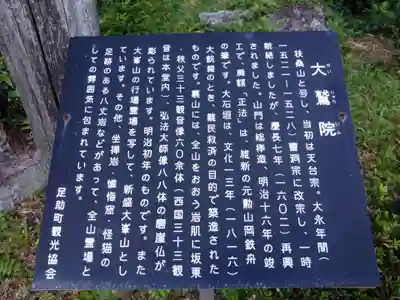 大鷲院
だい じゅう いん
扶桑山と号し、当初は天台宗、大永年間（
一五二一―一五二八）曹洞宗に改宗し、一時
戦絶しましたが、慶長七年（一六〇二）再興
されました。山門は総欅造、明治十六年の竣
工で、扁額「正法」は、維新の元勲山岡鉄舟
の筆です。大石垣は、文化一三年（一八一六）
大飢饉のとき、難民救済の目的で築造された
ものです。裏山には、全山をおおう岩肌に坂東
・秩父三十三観音像六〇余体（西国三十三観
音は本堂内）、弘法大師像八八体の磨崖仏が
彫られています。明治初年のものです。また
大峯山の行場霊場を写して、新盛大峯山とし
ています。その他、坐禅岩、懺悔窟、怪猫の
足跡のある八丈岩などがあって、全山霊場と
しての雰囲気に包まれています。
足助町観光協会